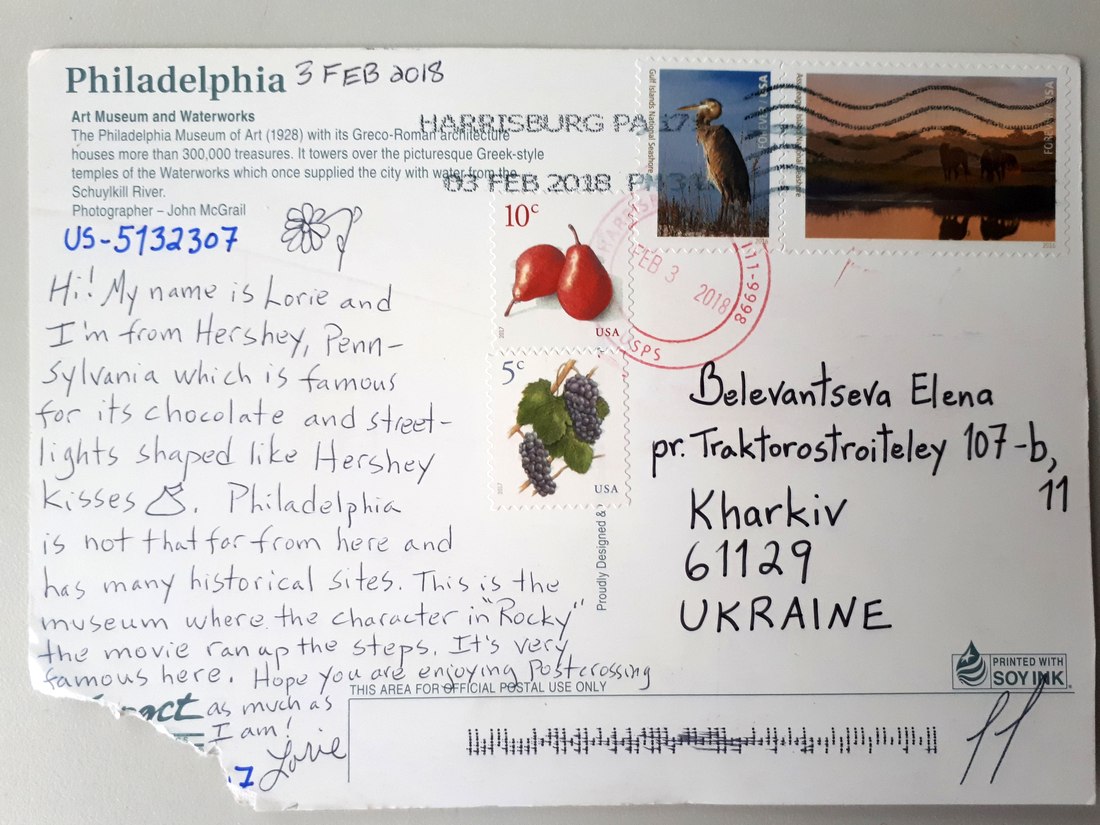 Philadelphia 3 FEB 2018
Art Museum and Waterworks
The Philadelphia Museum of Art (1928) with its Greco-Roman architecture
houses more than 300,000 treasures. It towers over the picturesque Greek-style
temples of the Waterworks which once supplied the city with water from the
Schuylkill River.
Photographer – John McGrail
US-5132307
Hi! My name is Lorie and
I'm from Hershey, Penn-
sylvania which is famous
for its chocolate and street-
lights shaped like Hershey
kisses. Philadelphia
is not that far from here and
has many historical sites. This is the
museum where the character in "Rocky"
the movie ran up the steps. It's very
famous here. Hope you are enjoying Postcrossing
as much as
I am!
Lorie
HARRISBURG PA 17
03 FEB 2018 PM 3
Gulf Islands National Seashore
FOREVER / USA
2016
Assateague Island National Seashore
FOREVER / USA
2016
10c
USA
2017
5c
USA
2017
FEB 3 2018
11-9998
USPS
Proudly Designed &
Belevantseva Elena
pr. Traktorostroiteley 107-b,
11
Kharkiv
61129
UKRAINE
PRINTED WITH
SOY INK
THIS AREA FOR OFFICIAL POSTAL USE ONLY
11